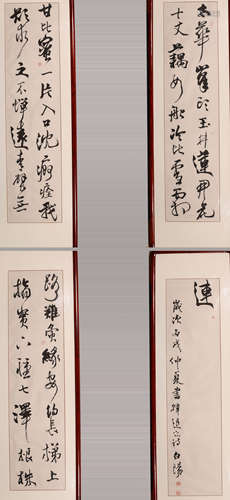 太華峯頭玉井蓮開花
十丈藕如船冷比雪霜
甘比蜜一片入口沈痾痊我
欲求之不憚遠青壁無
路難夤緣安得長梯上
摘實下種七澤根株
連
歲次丙戌仲夏書韓退之詩